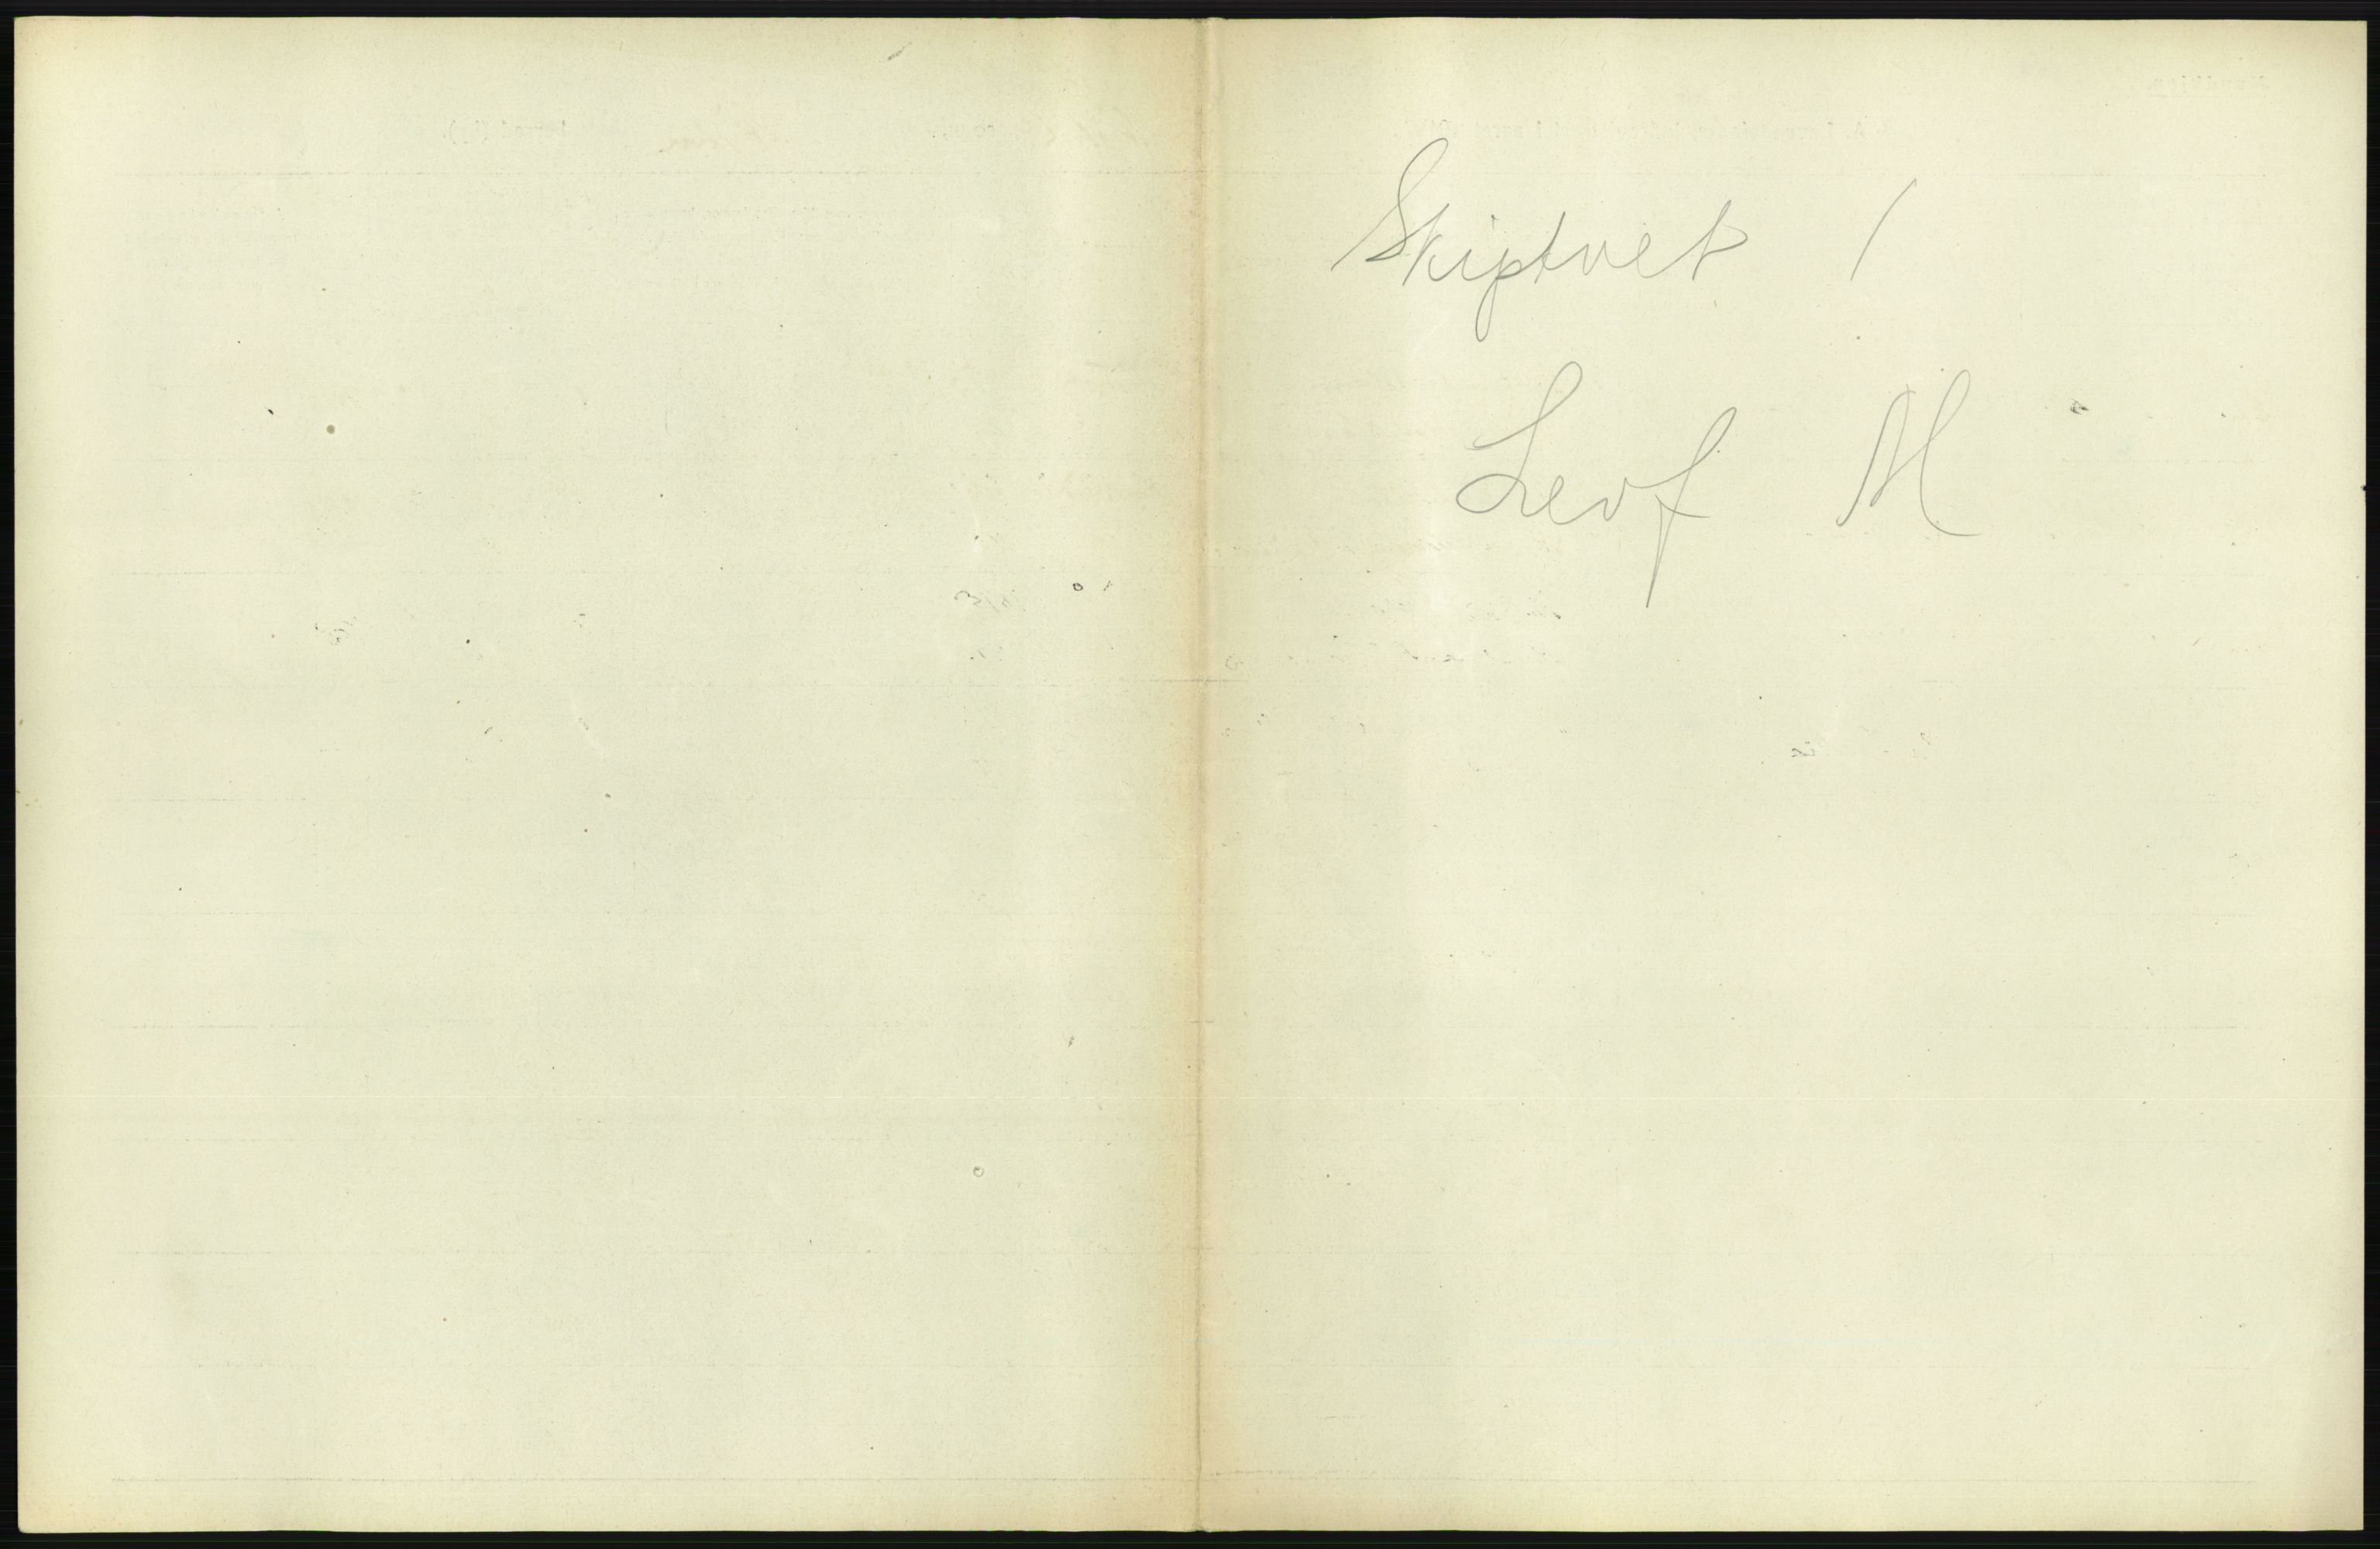 Skiptvet 1
Levf M